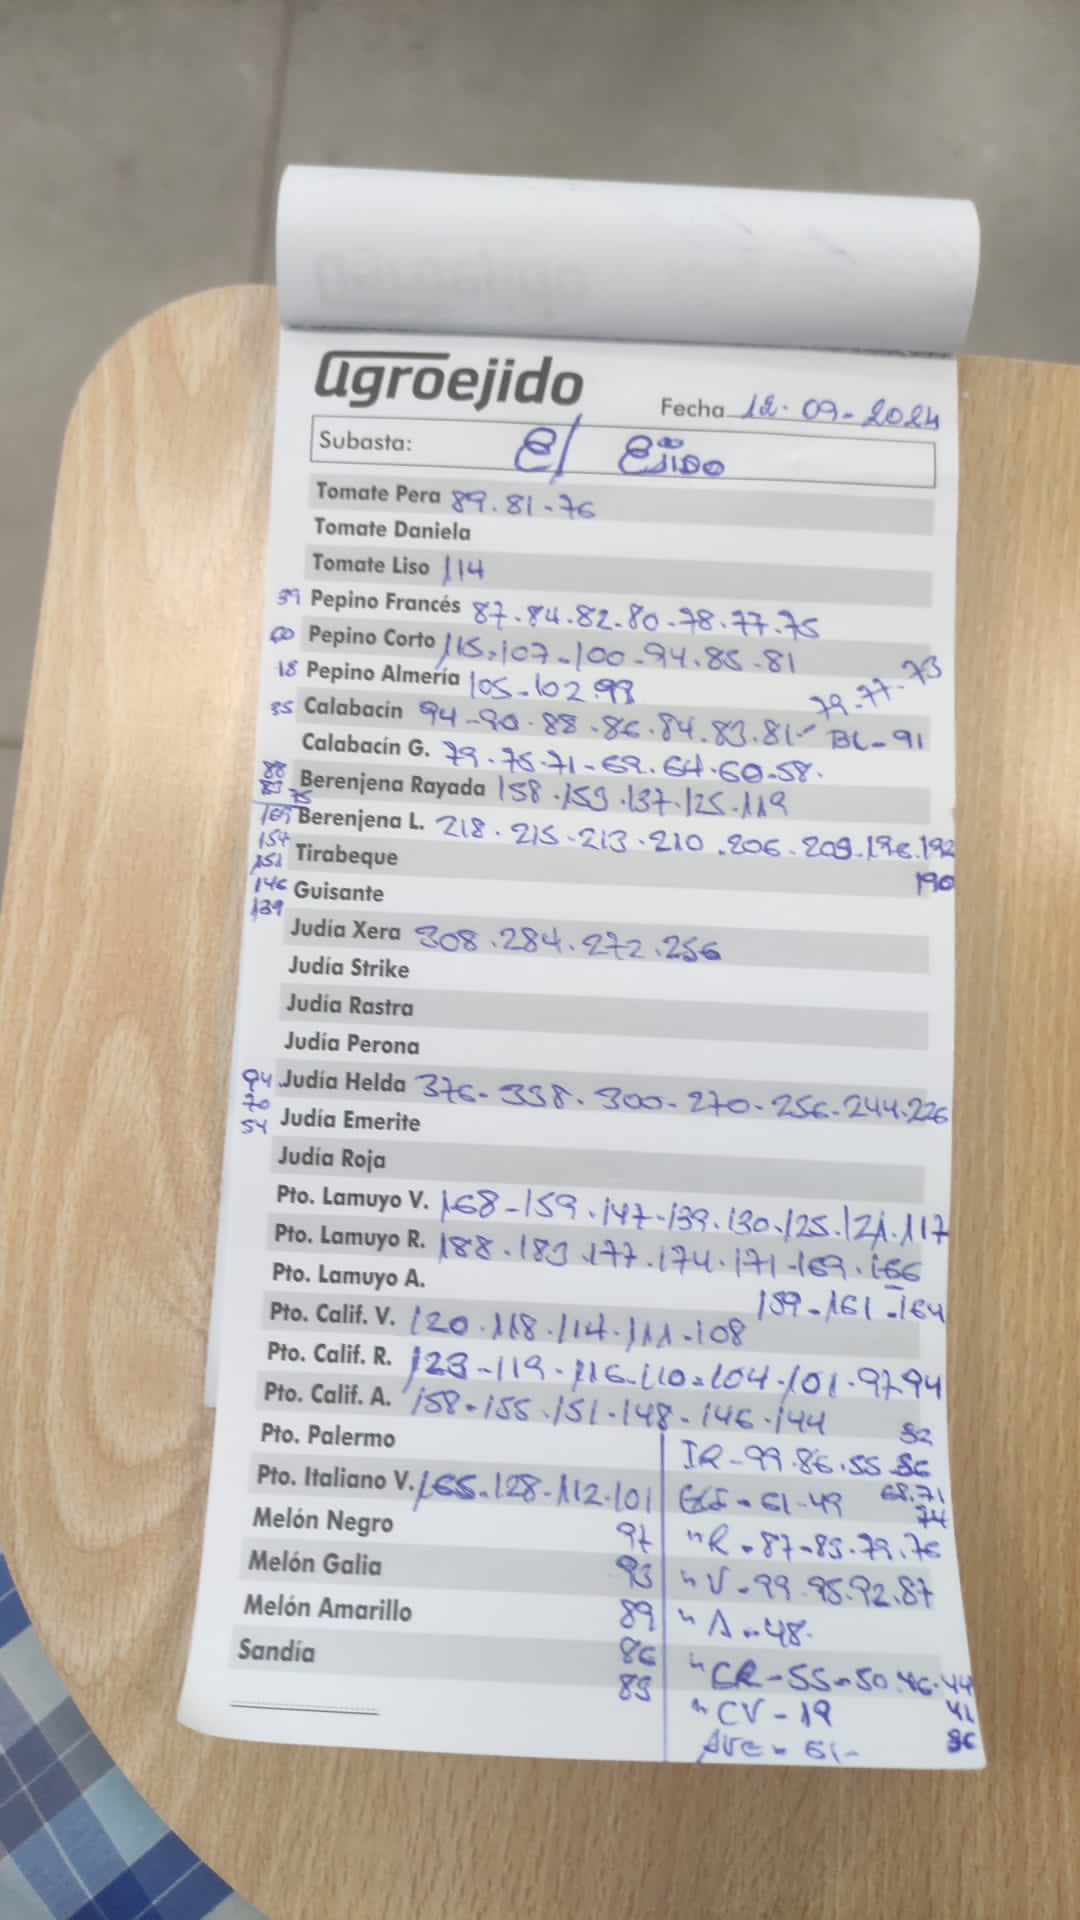 agroejido
Fecha 12-09-2024
Subasta: E/ Ejido
Tomate Pera 89.81-76
Tomate Daniela
Tomate Liso 114
39 Pepino Francés 87.84.82-80-78.77.75
60 Pepino Corto 115-107-100-94.85-81
18 Pepino Almería 105-102.99
79-77-73
35 Calabacín 94-90.88-86.84.83.81- BL-91
Calabacín G. 79-75-71-69.64.60-58.
88
83 75
Berenjena Rayada 158.153.137.125.119
Berenjena L. 218.215-213.210.206.203.196.192
190
154
151
146
139
Tirabeque
Guisante
Judía Xera 308.284.272.256
Judía Strike
Judía Rastra
Judía Perona
94 Judía Helda 376-338.300-270-256-244.226
70
54
Judía Emerite
Judía Roja
Pto. Lamuyo V. 168-159.147-139.130.125.121.117
Pto. Lamuyo R. 188.183.177.174.171-169.166
159-161-164
Pto. Lamuyo A.
Pto. Calif. V. 120.118.114.111-108
Pto. Calif. R. 123-119-116-110-104-101.97.94
Pto. Calif. A. 158-155.151-148-146.144
Pto. Palermo
IR-99.86.55
Pto. Italiano V. 165-128-112.101
97
93
89
86
83
61-49
68.71
74
Melón Negro
"R-87-83.79.76
Melón Galia
"V-99.95.92.87
Melón Amarillo
"A-48.
Sandía
"CR-55-50.46.44
41
36
"CV-19
61-